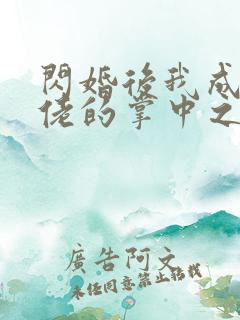 閃婚後我成
佬的掌中之
廣告阿文
未經同意禁止轉載